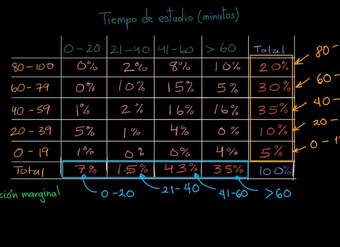 Tiempo de estudio (minutos)
0-20 21-40 41-60 >60 Total 80 -
80-100 0% 2% 8% 10% 20%
60-79 0% 10% 15% 5% 30% 60 -
40-59 1% 2% 16% 16% 35% 40 -
20-39 5% 1% 4% 0% 10% 20 -
0-19 1% 0% 0% 4% 5% 0 -
Total 7% 15% 43% 35% 100%
ción marginal 0-20 21-40 41-60 >60